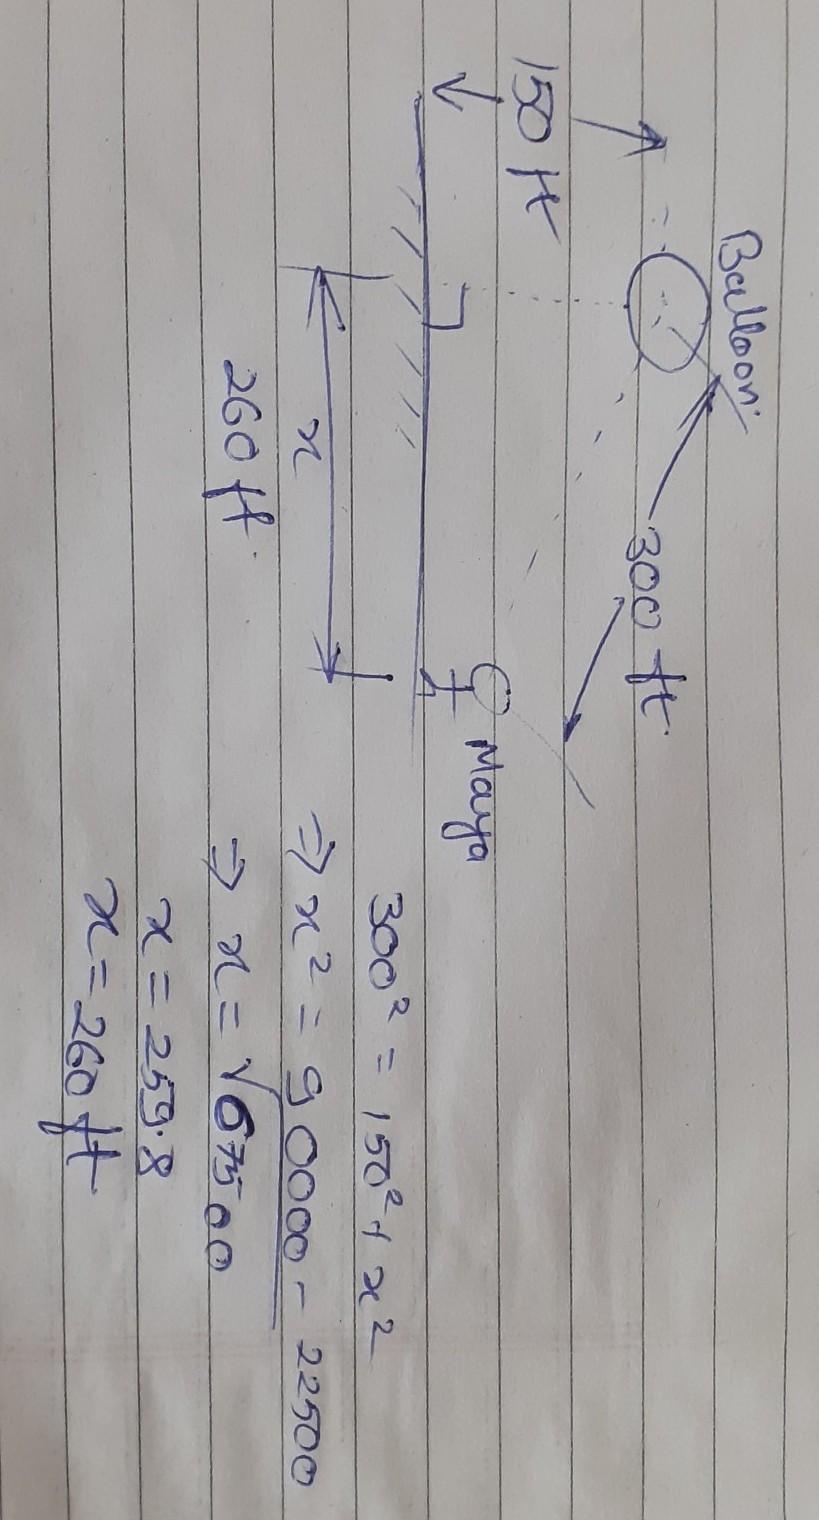 Balloon.
300 ft.
150 ft
Maya
x
260 ft.
300² = 150² + x²
⇒ x² = 90000 - 22500
⇒ x = √67500
x = 259.8
x = 260 ft